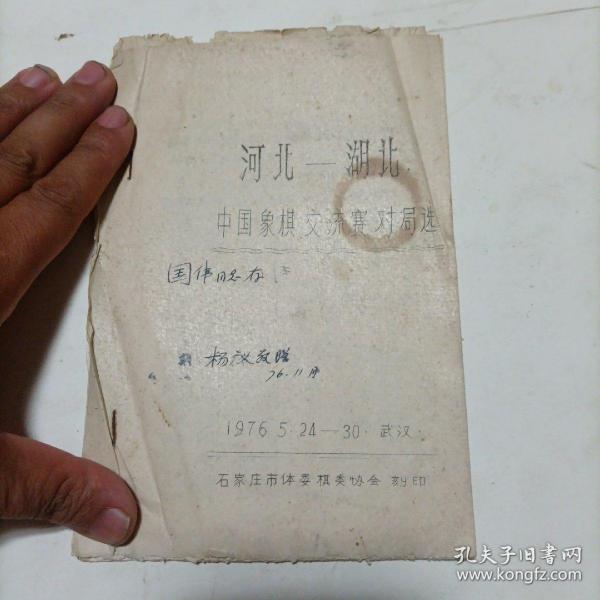 河北—湖北
中国象棋交流赛对局选
国伟同志存
杨议敬赠
76.11月
1976 5·24—30·武汉·
石家庄市体委棋类协会 刻印
孔夫子旧书网
www.kongfz.com